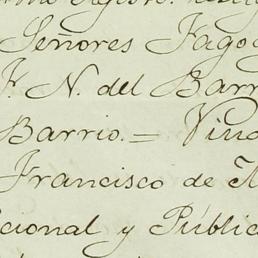 Señores Fago
F. N. del Barr
Barrio. = Viud
Francisco de
cional y Públic